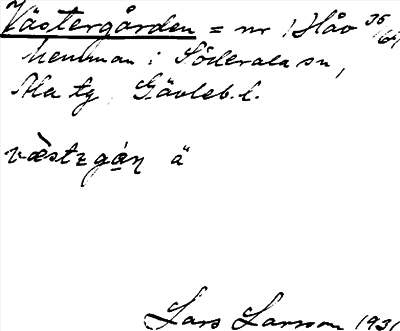 Västergården = nr 1 Håv 35/64
hemman i Söderala sn,
Ala tg Gävleb. l.
væstɛgán ä
Lars Larsson 1931